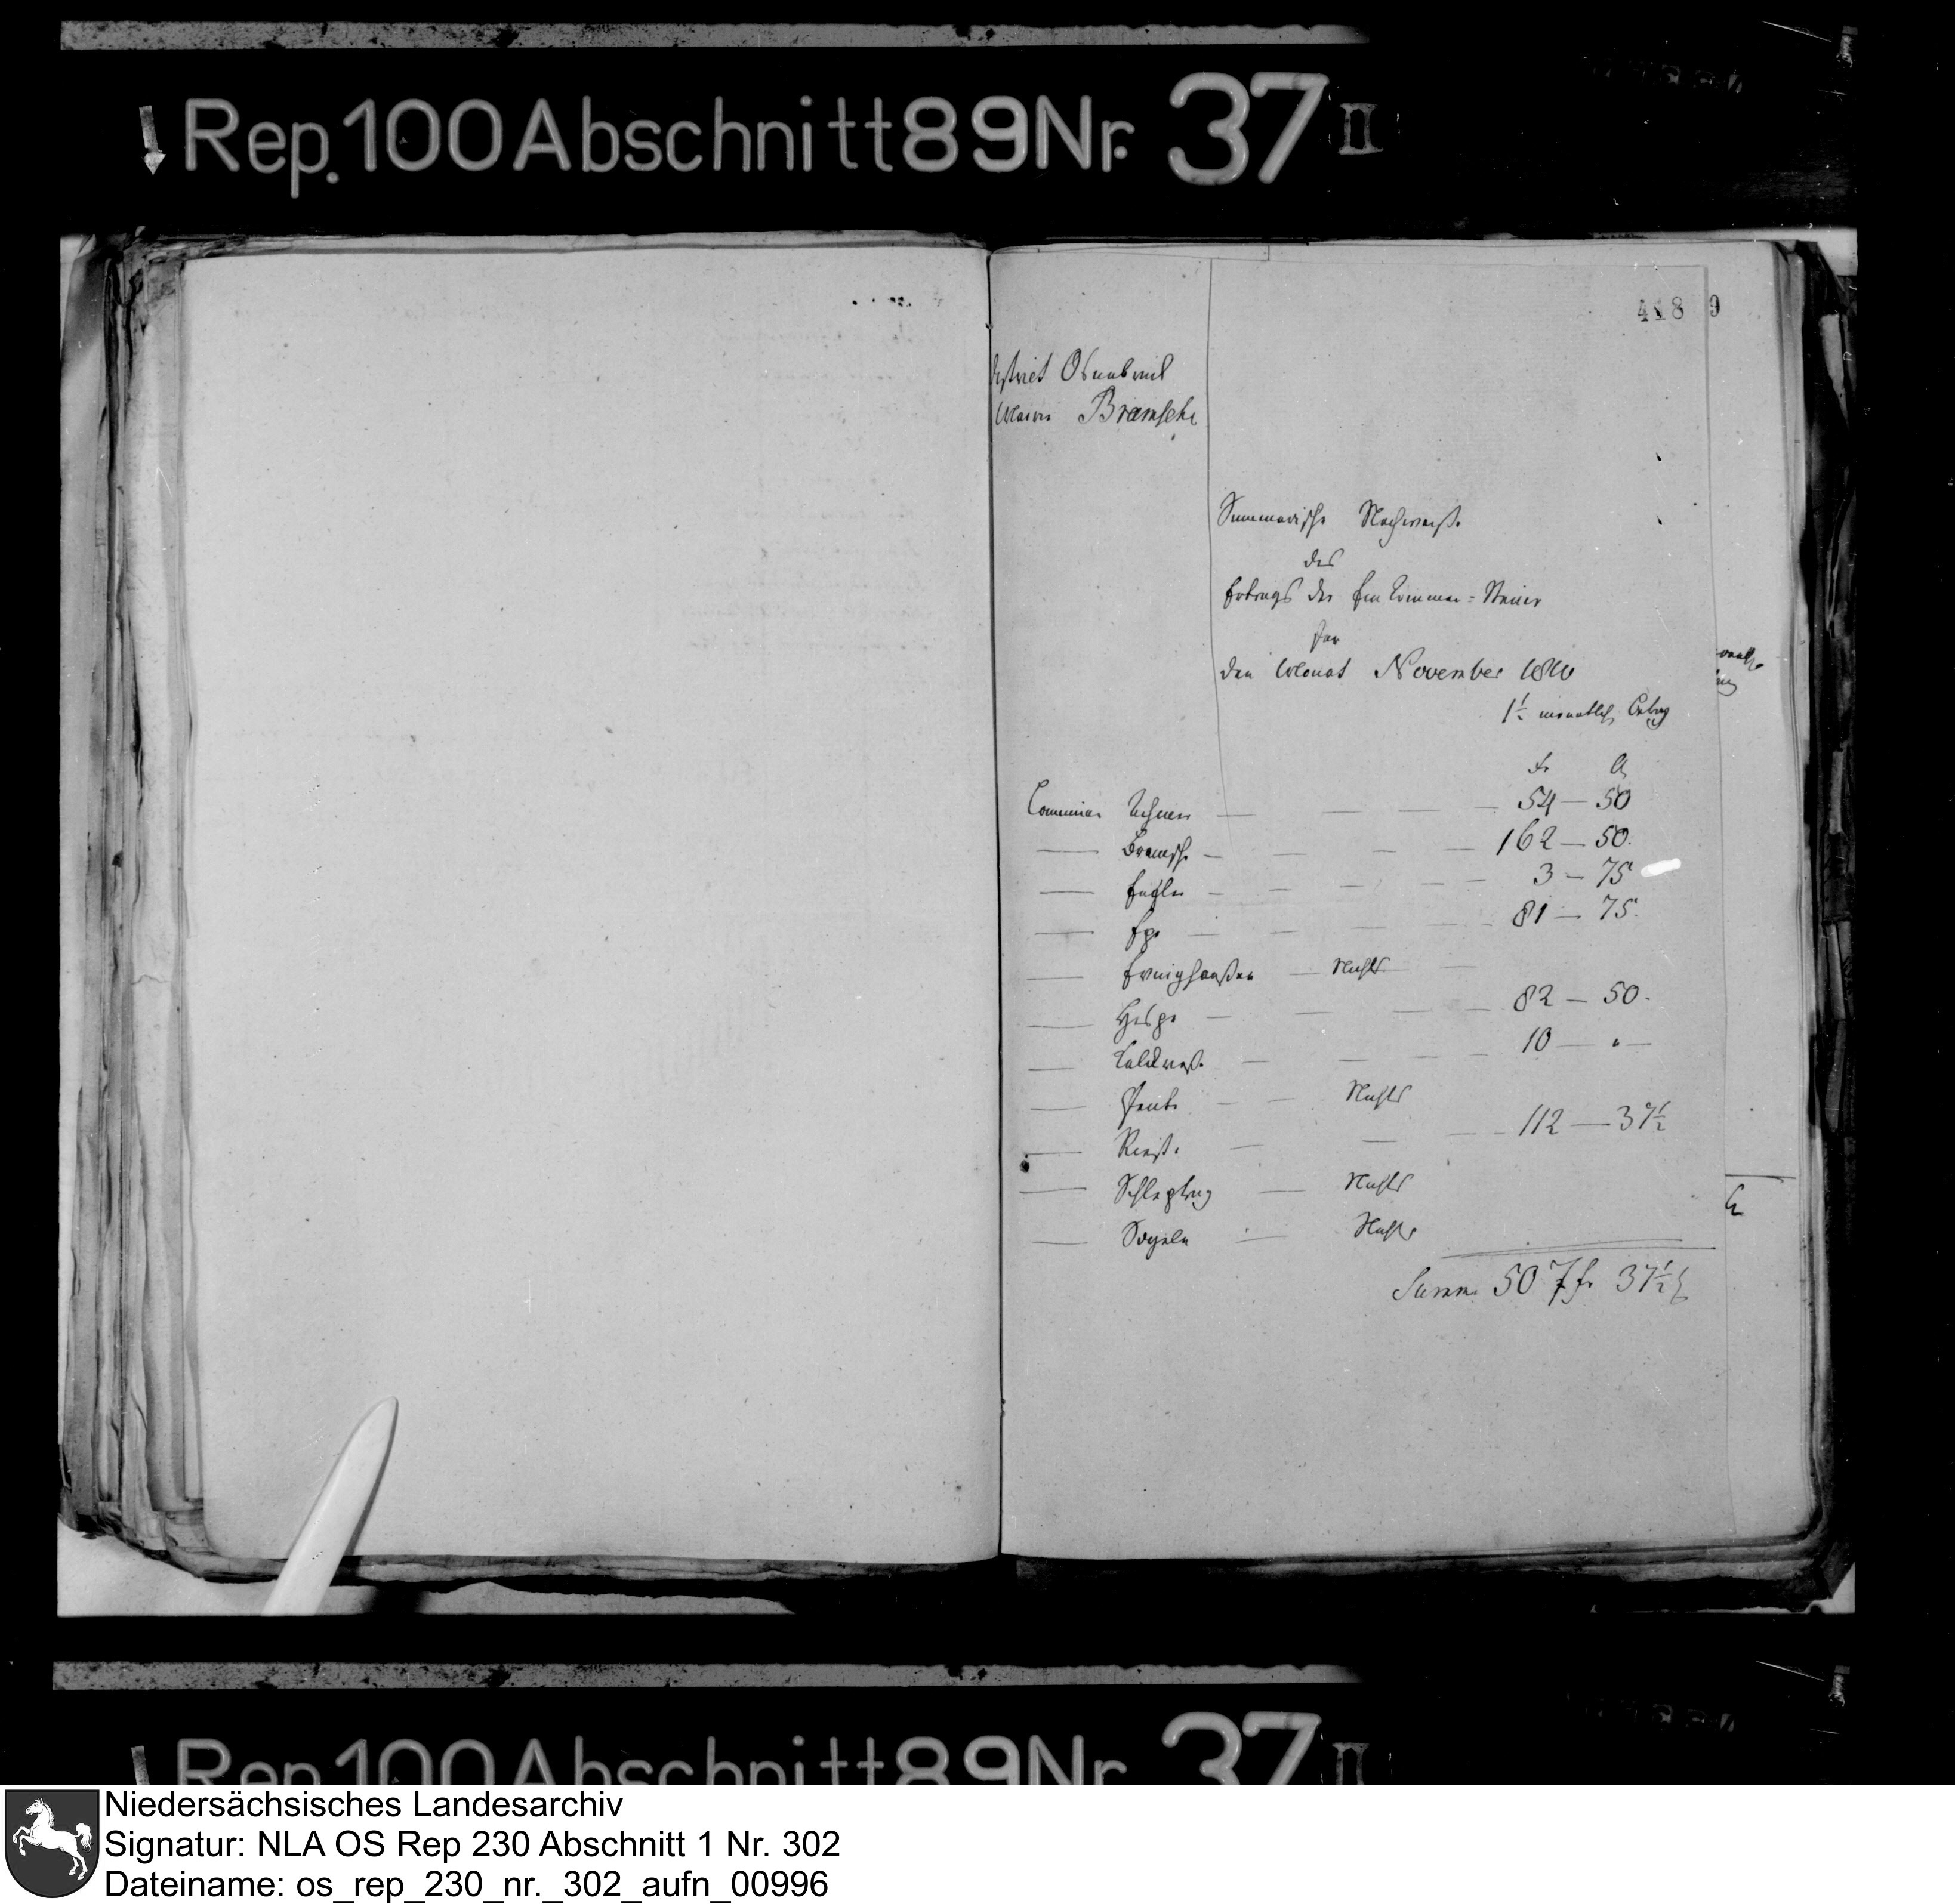 Rep. 100 Abschnitt 89 Nr. 37 II
418 9
District Osnabrück
Mairie Bramsche
Summarische Nachweise
des
Ertrags der Einkommen-Steuer
für
den Monat November 1810
1½ monatlich Betrag
Fr C
Commune Achmer — — — — 54 — 50
— Bramsche — — — — 162 — 50.
— Engter — — — — — 3 — 75
— Epe — — — — — 81 — 75.
— Evinghausen — Nichts —
— Hesepe — — — — 82 — 50.
— Kalkriese — — — — 10 — " —
— Pente — — Nichts
— Rieste — — — 112 — 37½
— Schleptrup — Nichts
— Sögeln — Nichts
Summe 507 fr 37½ C
Rep. 100 Abschnitt 89 Nr. 37 II
Niedersächsisches Landesarchiv
Signatur: NLA OS Rep 230 Abschnitt 1 Nr. 302
Dateiname: os_rep_230_nr._302_aufn_00996